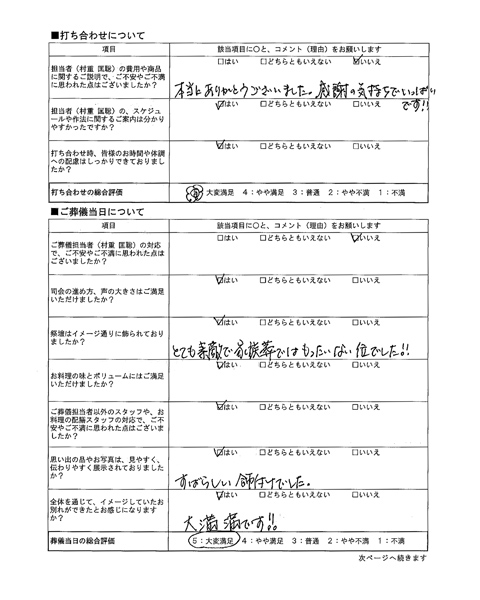 ■打ち合わせについて
項目 該当項目に○と、コメント（理由）をお願いします
担当者（村重 匡聡）の費用や商品
に関するご説明で、ご不安やご不満
に思われた点はございましたか？
□はい □どちらともいえない ☑いいえ
本当にありがとうございました。感謝の気持ちでいっぱい
です!!
担当者（村重 匡聡）の、スケジュ
ールや作法に関するご案内は分かり
やすかったですか？
☑はい □どちらともいえない □いいえ
打ち合わせ時、皆様のお時間や体調
への配慮はしっかりできておりまし
たか？
☑はい □どちらともいえない □いいえ
打ち合わせの総合評価 5：大変満足 4：やや満足 3：普通 2：やや不満 1：不満
■ご葬儀当日について
項目 該当項目に○と、コメント（理由）をお願いします
ご葬儀担当者（村重 匡聡）の対応
で、ご不安やご不満に思われた点は
ございましたか？
□はい □どちらともいえない ☑いいえ
司会の進め方、声の大きさはご満足
いただけましたか？
☑はい □どちらともいえない □いいえ
祭壇はイメージ通りに飾られており
ましたか？
☑はい □どちらともいえない □いいえ
とても素敵で家族葬ではもったいない位でした!!
お料理の味とボリュームにはご満足
いただけましたか？
☑はい □どちらともいえない □いいえ
ご葬儀担当者以外のスタッフや、お
料理の配膳スタッフの対応で、ご不
安やご不満に思われた点はございま
したか？
☑はい □どちらともいえない □いいえ
思い出の品やお写真は、見やすく、
伝わりやすく展示されておりました
か？
☑はい □どちらともいえない □いいえ
すばらしい飾付けでした。
全体を通じて、イメージしていたお
別れができたとお感じになります
か？
☑はい □どちらともいえない □いいえ
大満満です!!
葬儀当日の総合評価 5：大変満足 4：やや満足 3：普通 2：やや不満 1：不満
次ページへ続きます